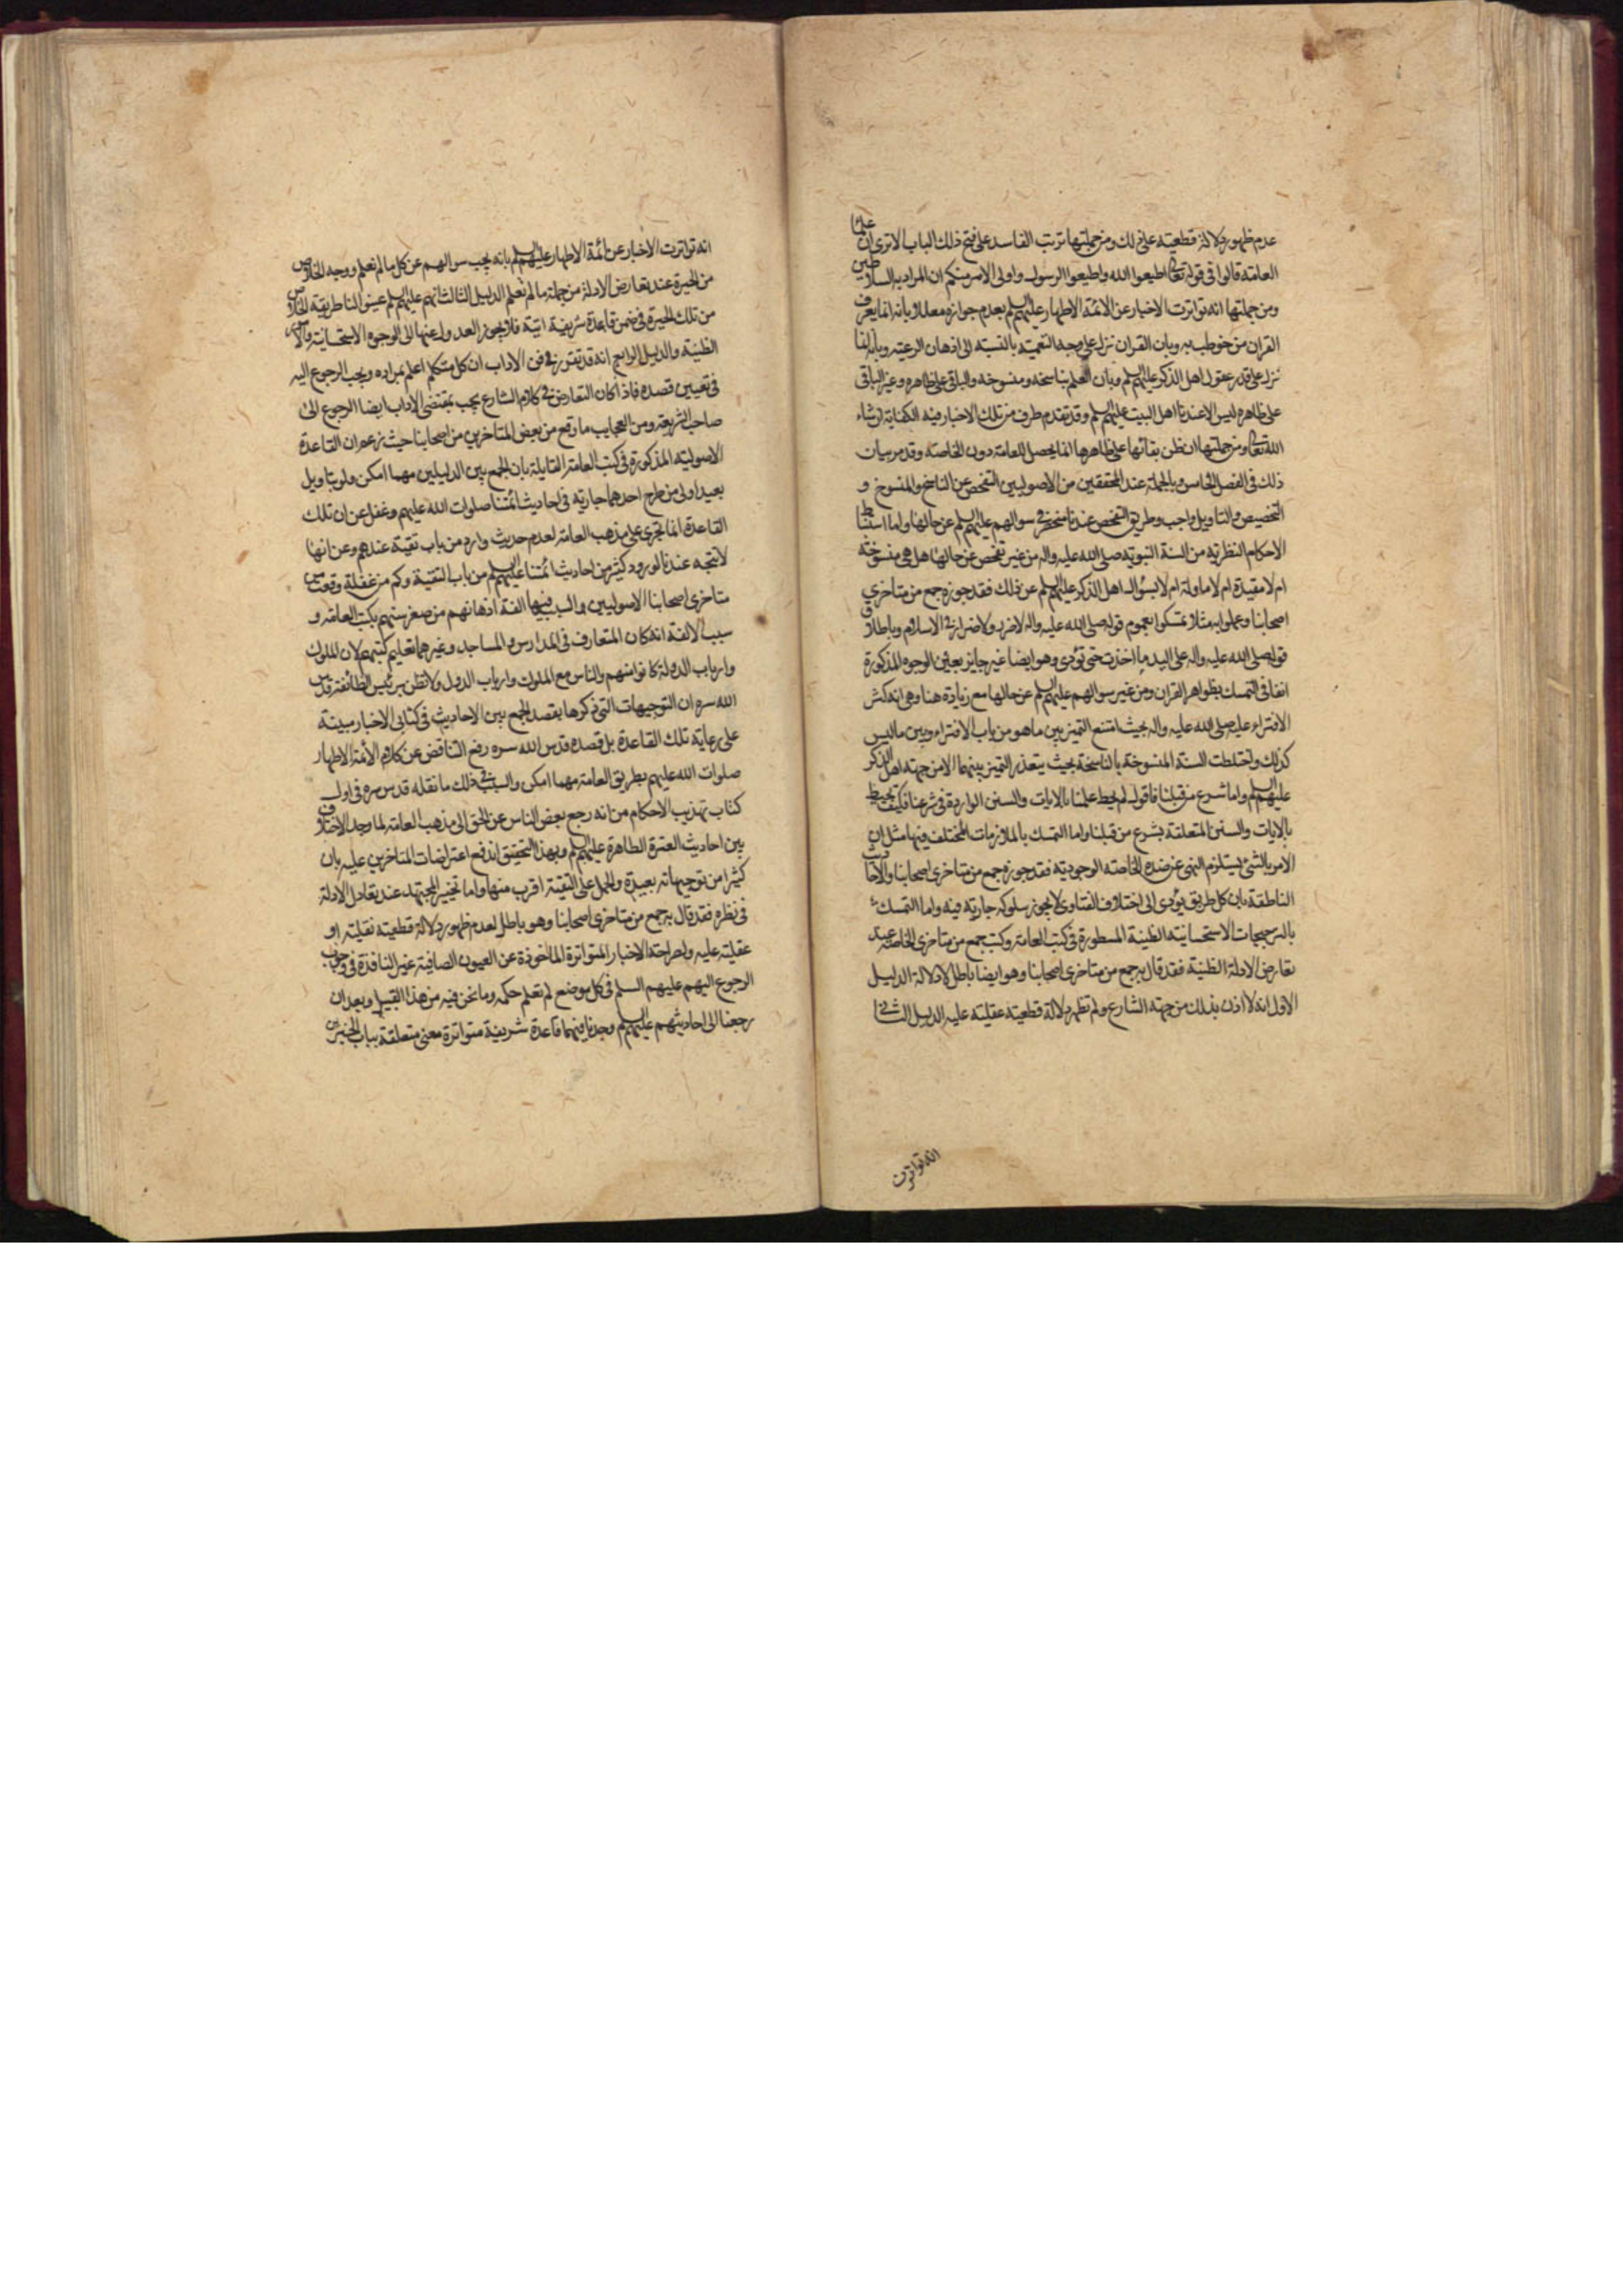 عدم ظهور دلالة قطعية على ذلك ومن جملتها ترتب الفاسد على فتح ذلك الباب الا ترى ان علما
العامة قالوا في قوله تعالى اطيعوا الله واطيعوا الرسول واولى الامر منكم ان المراد به السلاطين
ومن جملتها انه تواترت الاخبار عن الائمة الاطهار عليهم السلم بعدم جوازه معللا بانه انما يعرف
القران من خوطب به وبان القران نزل على وجه التعمية بالنسبة الى اذهان الرعية وبانه انما
نزل على قدر عقول اهل الذكر عليهم السلم وبان العلم بناسخه ومنسوخه والباقى على ظاهره وغير الباقى
على ظاهره ليس الا عندنا اهل البيت عليهم السلم وقد تقدم طرف من تلك الاخبار فيه الكفاية ان شاء
الله تعالى ومن جملتها ان ظن بقائها على ظاهرها انما يحصل للعامة دون الخاصة وقد مر بيان
ذلك في الفصل الخامس وبالجملة عند المحققين من الاصوليين التفحص عن الناسخ والمنسوخ و
التخصيص والتاويل واجب وطريق التفحص عندنا منحصر في سوالهم عليهم السلم عن حالها واما استنباط
الاحكام النظرية من السنة النبوية صلى الله عليه واله من غير تفحص عن حالها هل هي منسوخة
ام لا مقيدة ام لا ماولة ام لا بسؤال اهل الذكر عليهم السلم عن ذلك فقد جوزه جمع من متاخري
اصحابنا وعملوا به مثلا تمسكوا بعموم قوله صلى الله عليه واله لا ضرر ولا ضرار في الاسلام وباطلاق
قوله صلى الله عليه واله على اليد ما اخذت حتى تؤدى وهو ايضا غير جايز بعين الوجوه المذكورة
انفا في التمسك بظواهر القران ومن غير سوالهم عليهم السلم عن حالها مع زيادة هنا وهي انه كثر
الافتراء عليه صلى الله عليه واله بحيث امتنع التميز بين ما هو من باب الافتراء وبين ما ليس
كذلك واختلطت السنة المنسوخة بالناسخة بحيث يتعذر التميز بينهما الا من جهة اهل الذكر
عليهم السلم واما شرع من قبلنا فاقول لم يحط علمنا بالايات والسنن الواردة في شرعنا فكيف تحيط
بالايات والسنن المتعلقة بشرع من قبلنا واما التمسك بالملازمات المختلف فيها مثل ان
الامر بالشئ يستلزم النهى عن ضده الخاصة الوجودية فقد جوزه جمع من متاخرى اصحابنا والاحاديث
الناطقة بان كل طريق يؤدى الى اختلاف الفتاوى لا يجوز سلوكه جارية فيه واما التمسك
بالترجيحات الاستحسانية الظنية المسطورة في كتب العامة وكتب جمع من متاخرى الخاصة عند
تعارض الادلة الظنية فقد قال به جمع من متاخرى اصحابنا وهو ايضا باطل لادلة الدليل
الاول انه لا اذن بذلك من جهة الشارع ولم تظهر دلالة قطعية عقلية عليه الدليل الثانى
انه تواترت
انه تواترت الاخبار عن الائمة الاطهار عليهم السلم بانه يجب سوالهم عن كل ما لم نعلم ووجه الخلاص
من الحيرة عند تعارض الادلة من جملة ما لم نعلم الدليل الثالث انهم عليهم السلم عينوا لنا طريقة الخلاص
من تلك الحيرة في ضمن قاعدة شريفة اتية فلا يجوز العدول عنها الى الوجوه الاستحسانية
الظنية والدليل الرابع انه قد تقرر في فن الاداب ان كل متكلم اعلم بمراده ويجب الرجوع اليه
في تعيين قصده فاذا كان التعارض في كلام الشارع يجب بمقتضى الاداب ايضا الرجوع الى
صاحب الشريعة ومن العجايب ما وقع من بعض المتاخرين من اصحابنا حيث زعم ان القاعدة
الاصولية المذكورة في كتب العامة القايلة بان الجمع بين الدليلين مهما امكن ولو بتاويل
بعيد اولى من طرح احدهما جارية في احاديث ائمتنا صلوات الله عليهم وغفل عن ان تلك
القاعدة انما تجرى على مذهب العامة لعدم حديث وارد من باب تقية عندهم وعن انها
لا تتجه عندنا لورود كثير من احاديث ائمتنا عليهم السلم من باب التقية وكم من غفلة وقعت من
متاخرى اصحابنا الاصوليين والسبب فيها الفة اذهانهم من صغر سنهم بكتب العامة و
سبب الالفة انه كان المتعارف في المدارس والمساجد وغيرهما تعليم كتبهم لان الملوك
وارباب الدولة كانوا منهم والناس مع الملوك وارباب الدول ولا تظن برئيس الطائفة قدس
الله سره ان التوجيهات التي ذكرها بقصد الجمع بين الاحاديث في كتابى الاخبار مبينة
على رعاية تلك القاعدة بل قصده قدس الله سره رفع التناقض عن كلام الائمة الاطهار
صلوات الله عليهم بطريق العامة مهما امكن والسبب في ذلك ما نقله قدس سره في اول
كتاب تهذيب الاحكام من انه رجع بعض الناس عن الحق الى مذهب العامة لما وجد الاختلاف
بين احاديث العترة الطاهرة عليهم السلم وبهذا التحقيق اندفع اعتراضات المتاخرين عليه بان
كثيرا من توجيهاته بعيدة والحمل على التقية اقرب منها واما تخيير المجتهد عند تعادل الادلة
في نظره فقد قال به جمع من متاخرى اصحابنا وهو باطل لعدم ظهور دلالة قطعية نقلية او
عقلية عليه ولصراحة الاخبار المتواترة الماخوذة عن العيون الصافية غير النافذة في وجوب
الرجوع اليهم عليهم السلم في كل موضع لم نعلم حكمه وما نحن فيه من هذا القبيل وبعد ان
رجعنا الى احاديثهم عليهم السلم وجدنا فيها قاعدة شريفة متواترة معنى متعلقة بباب الخبرين